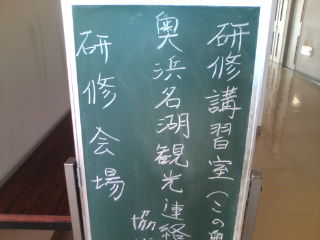 研修講習室(この奥
奥浜名湖観光連絡
協
研修会場